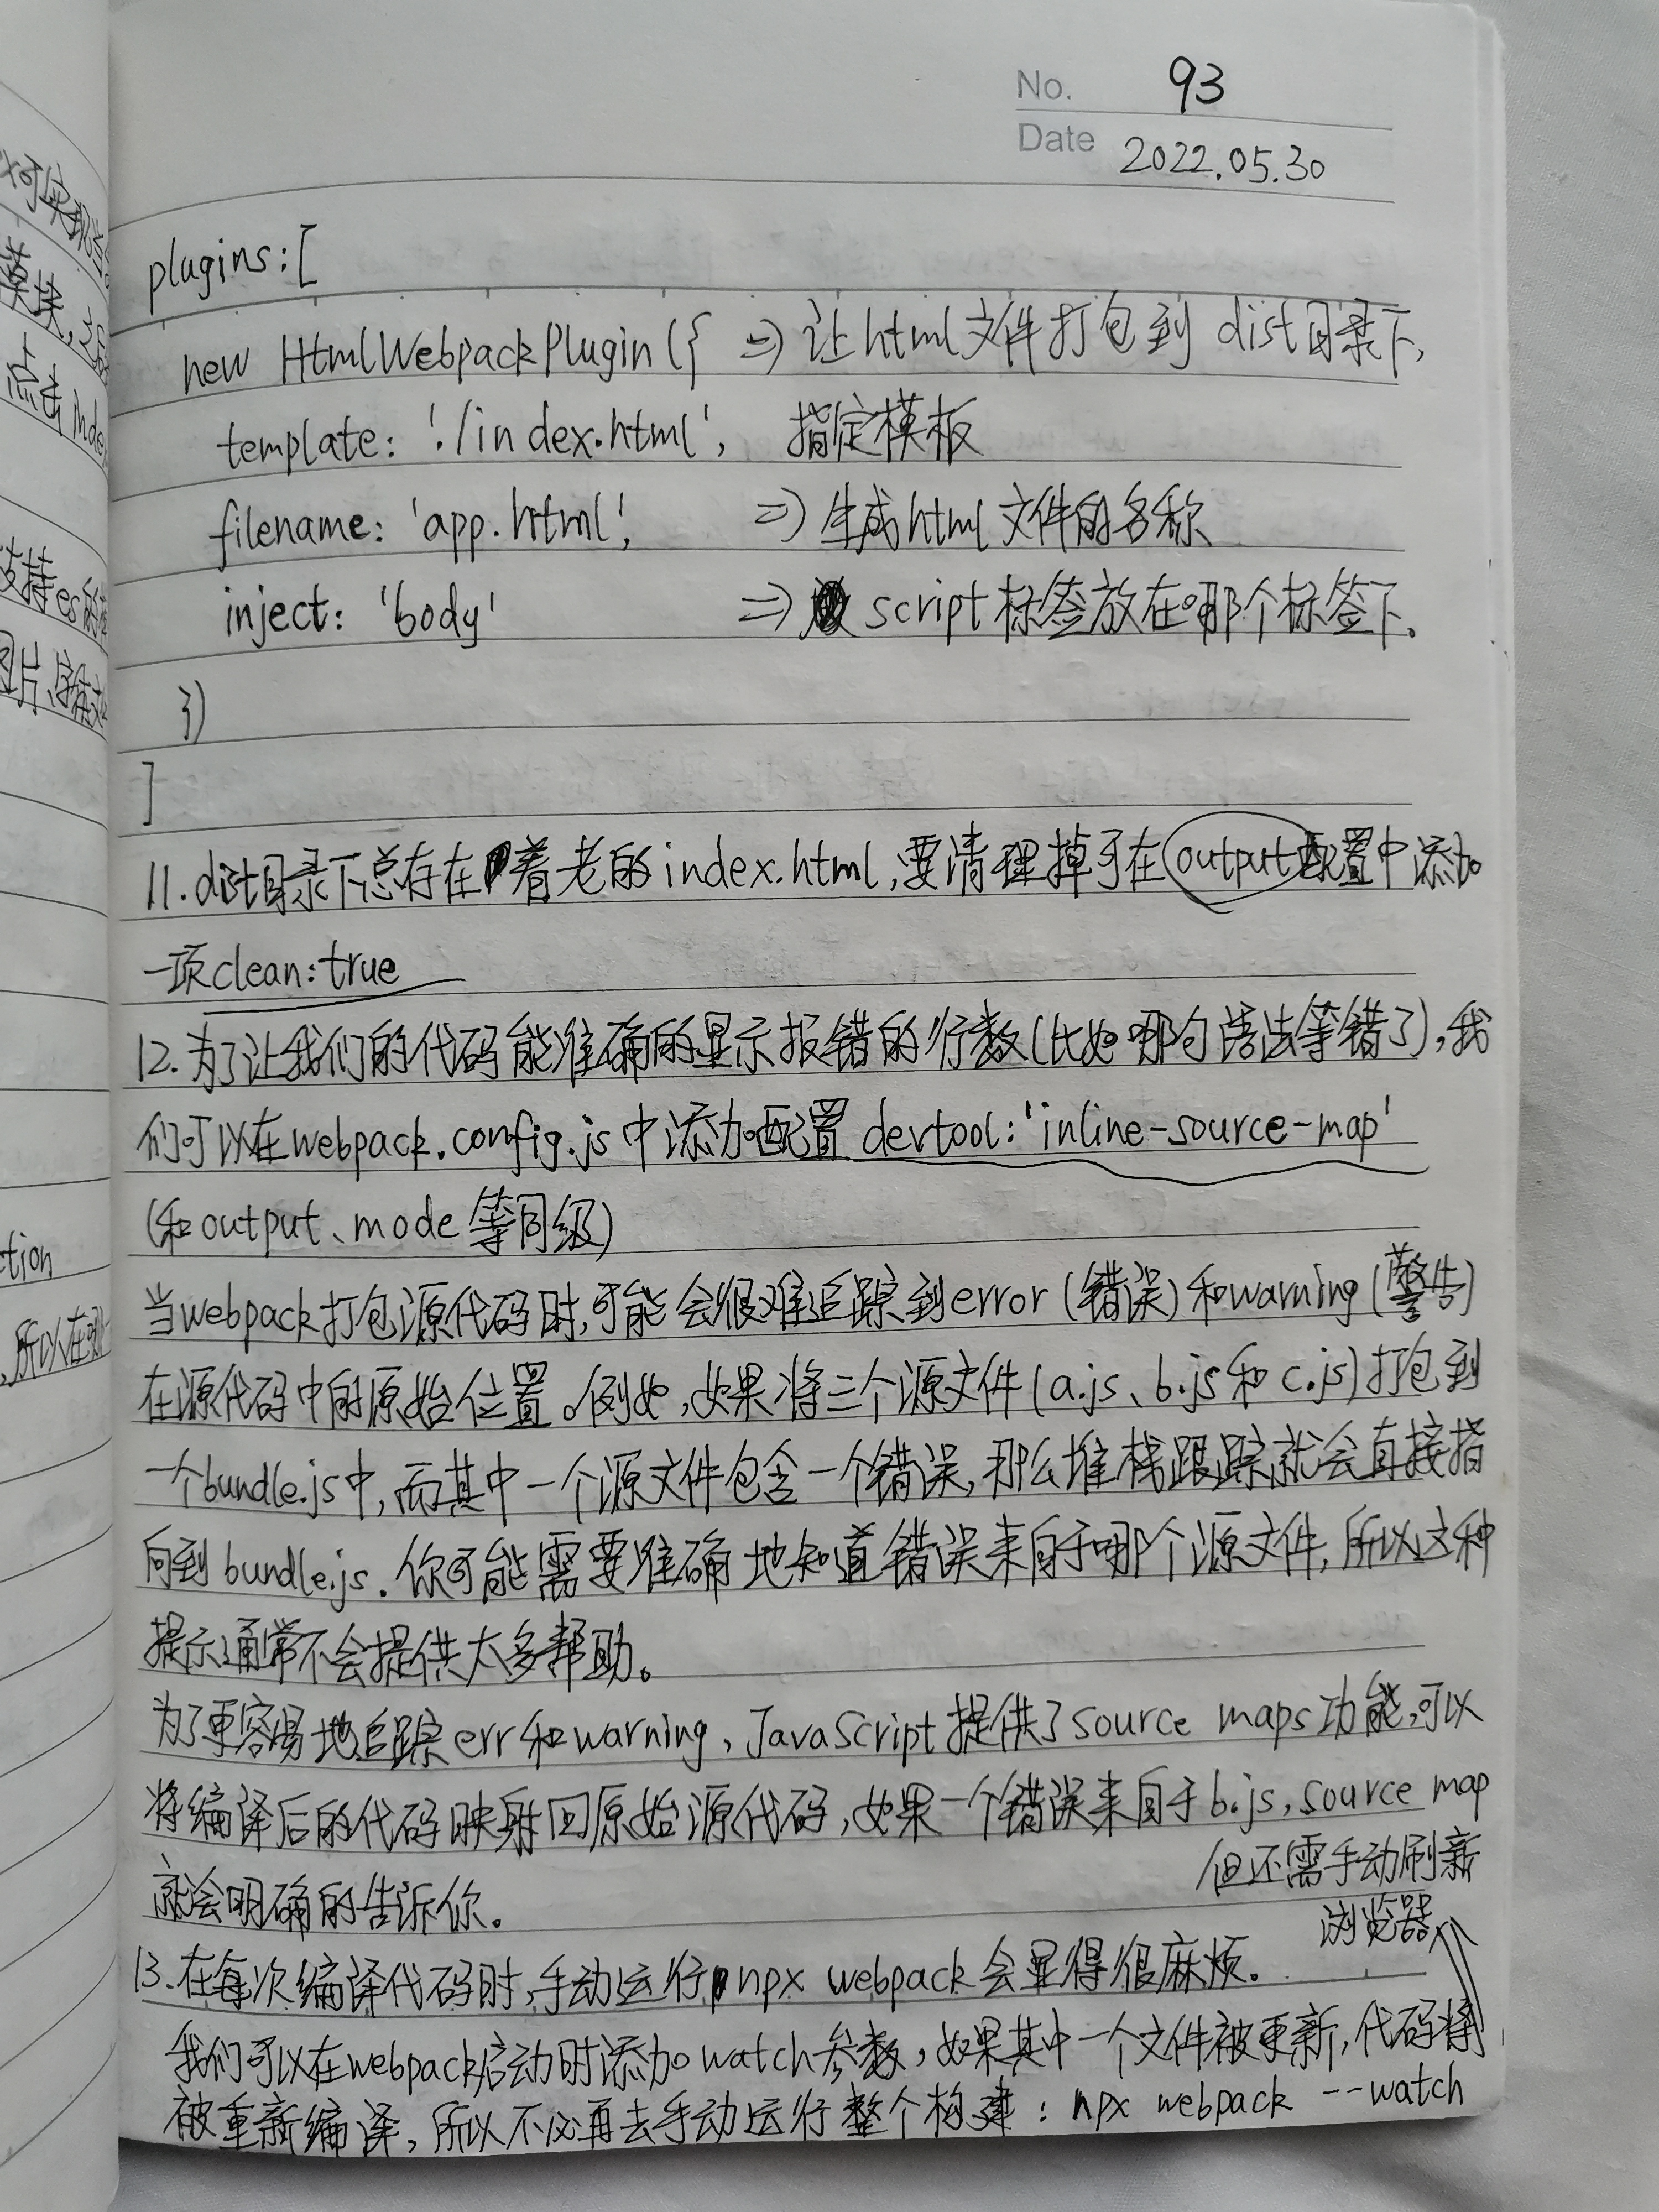 No. 93
Date 2022.05.30
plugins:[
new HtmlWebpackPlugin({ => 让html文件打包到 dist目录下,
template: './index.html', 指定模板
filename: 'app.html', => 生成html文件的名称
inject: 'body' => script标签放在哪个标签下、
})
]
11.dist目录下总存在着老的index.html,要清理掉可在output配置中添加
一项clean:true
12.为了让我们的代码能准确的显示报错的行数(比如哪句语法等错了),我
们可以在webpack.config.js中添加配置 devtool:'inline-source-map'
(和output、mode等同级)
当webpack打包源代码时,可能会很难追踪到error(错误)和warning(警告)
在源代码中的原始位置。例如,如果将三个源文件(a.js、b.js和c.js)打包到
一个bundle.js中,而其中一个源文件包含一个错误,那么堆栈跟踪就会直接指
向到bundle.js.你可能需要准确地知道错误来自于哪个源文件,所以这种
提示通常不会提供太多帮助。
为了更容易地追踪err和warning,JavaScript提供了source maps功能,可以
将编译后的代码映射回原始源代码,如果一个错误来自于b.js,source map
就会明确的告诉你。
但还需手动刷新
浏览器
13.在每次编译代码时,手动运行npx webpack会显得很麻烦。
我们可以在webpack启动时添加watch参数,如果其中一个文件被更新,代码将
被重新编译,所以不必再去手动运行整个构建:npx webpack --watch
可实现
模块,
点击inde
支持es的
图片、字体文
ction
,所以在